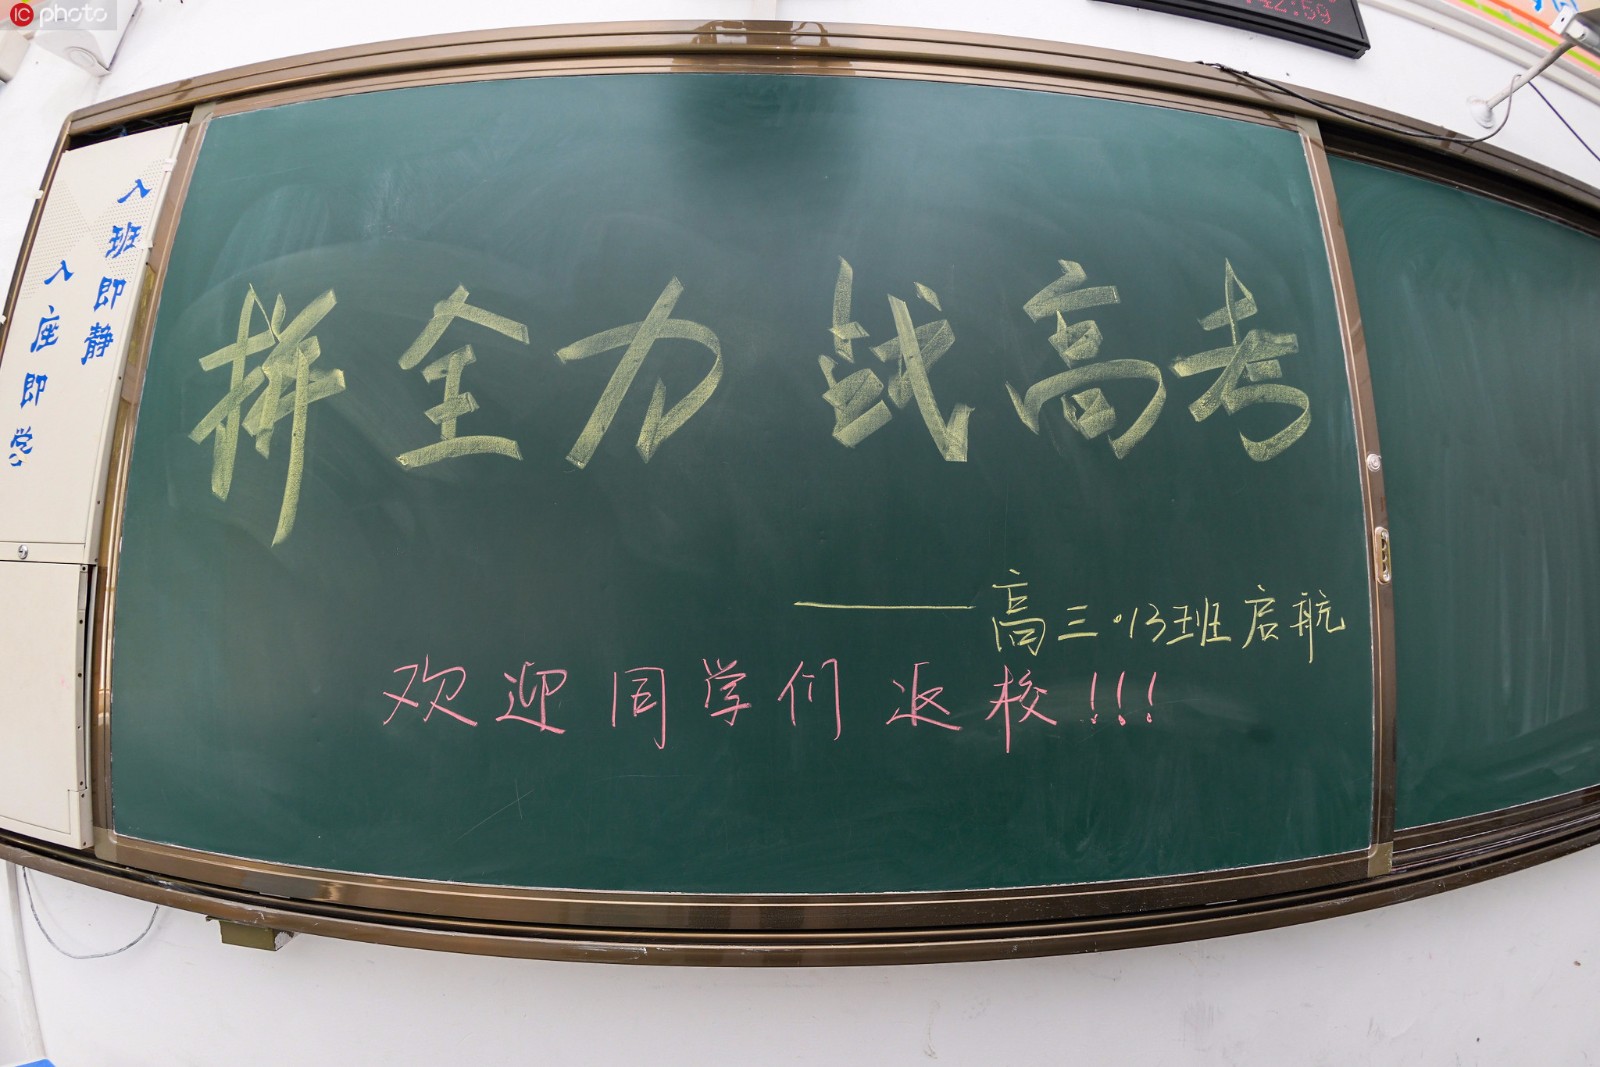 iC photo
:42:59
入班即静
入座即学
拼全力 战高考
——高三·13班启航
欢迎同学们返校!!!